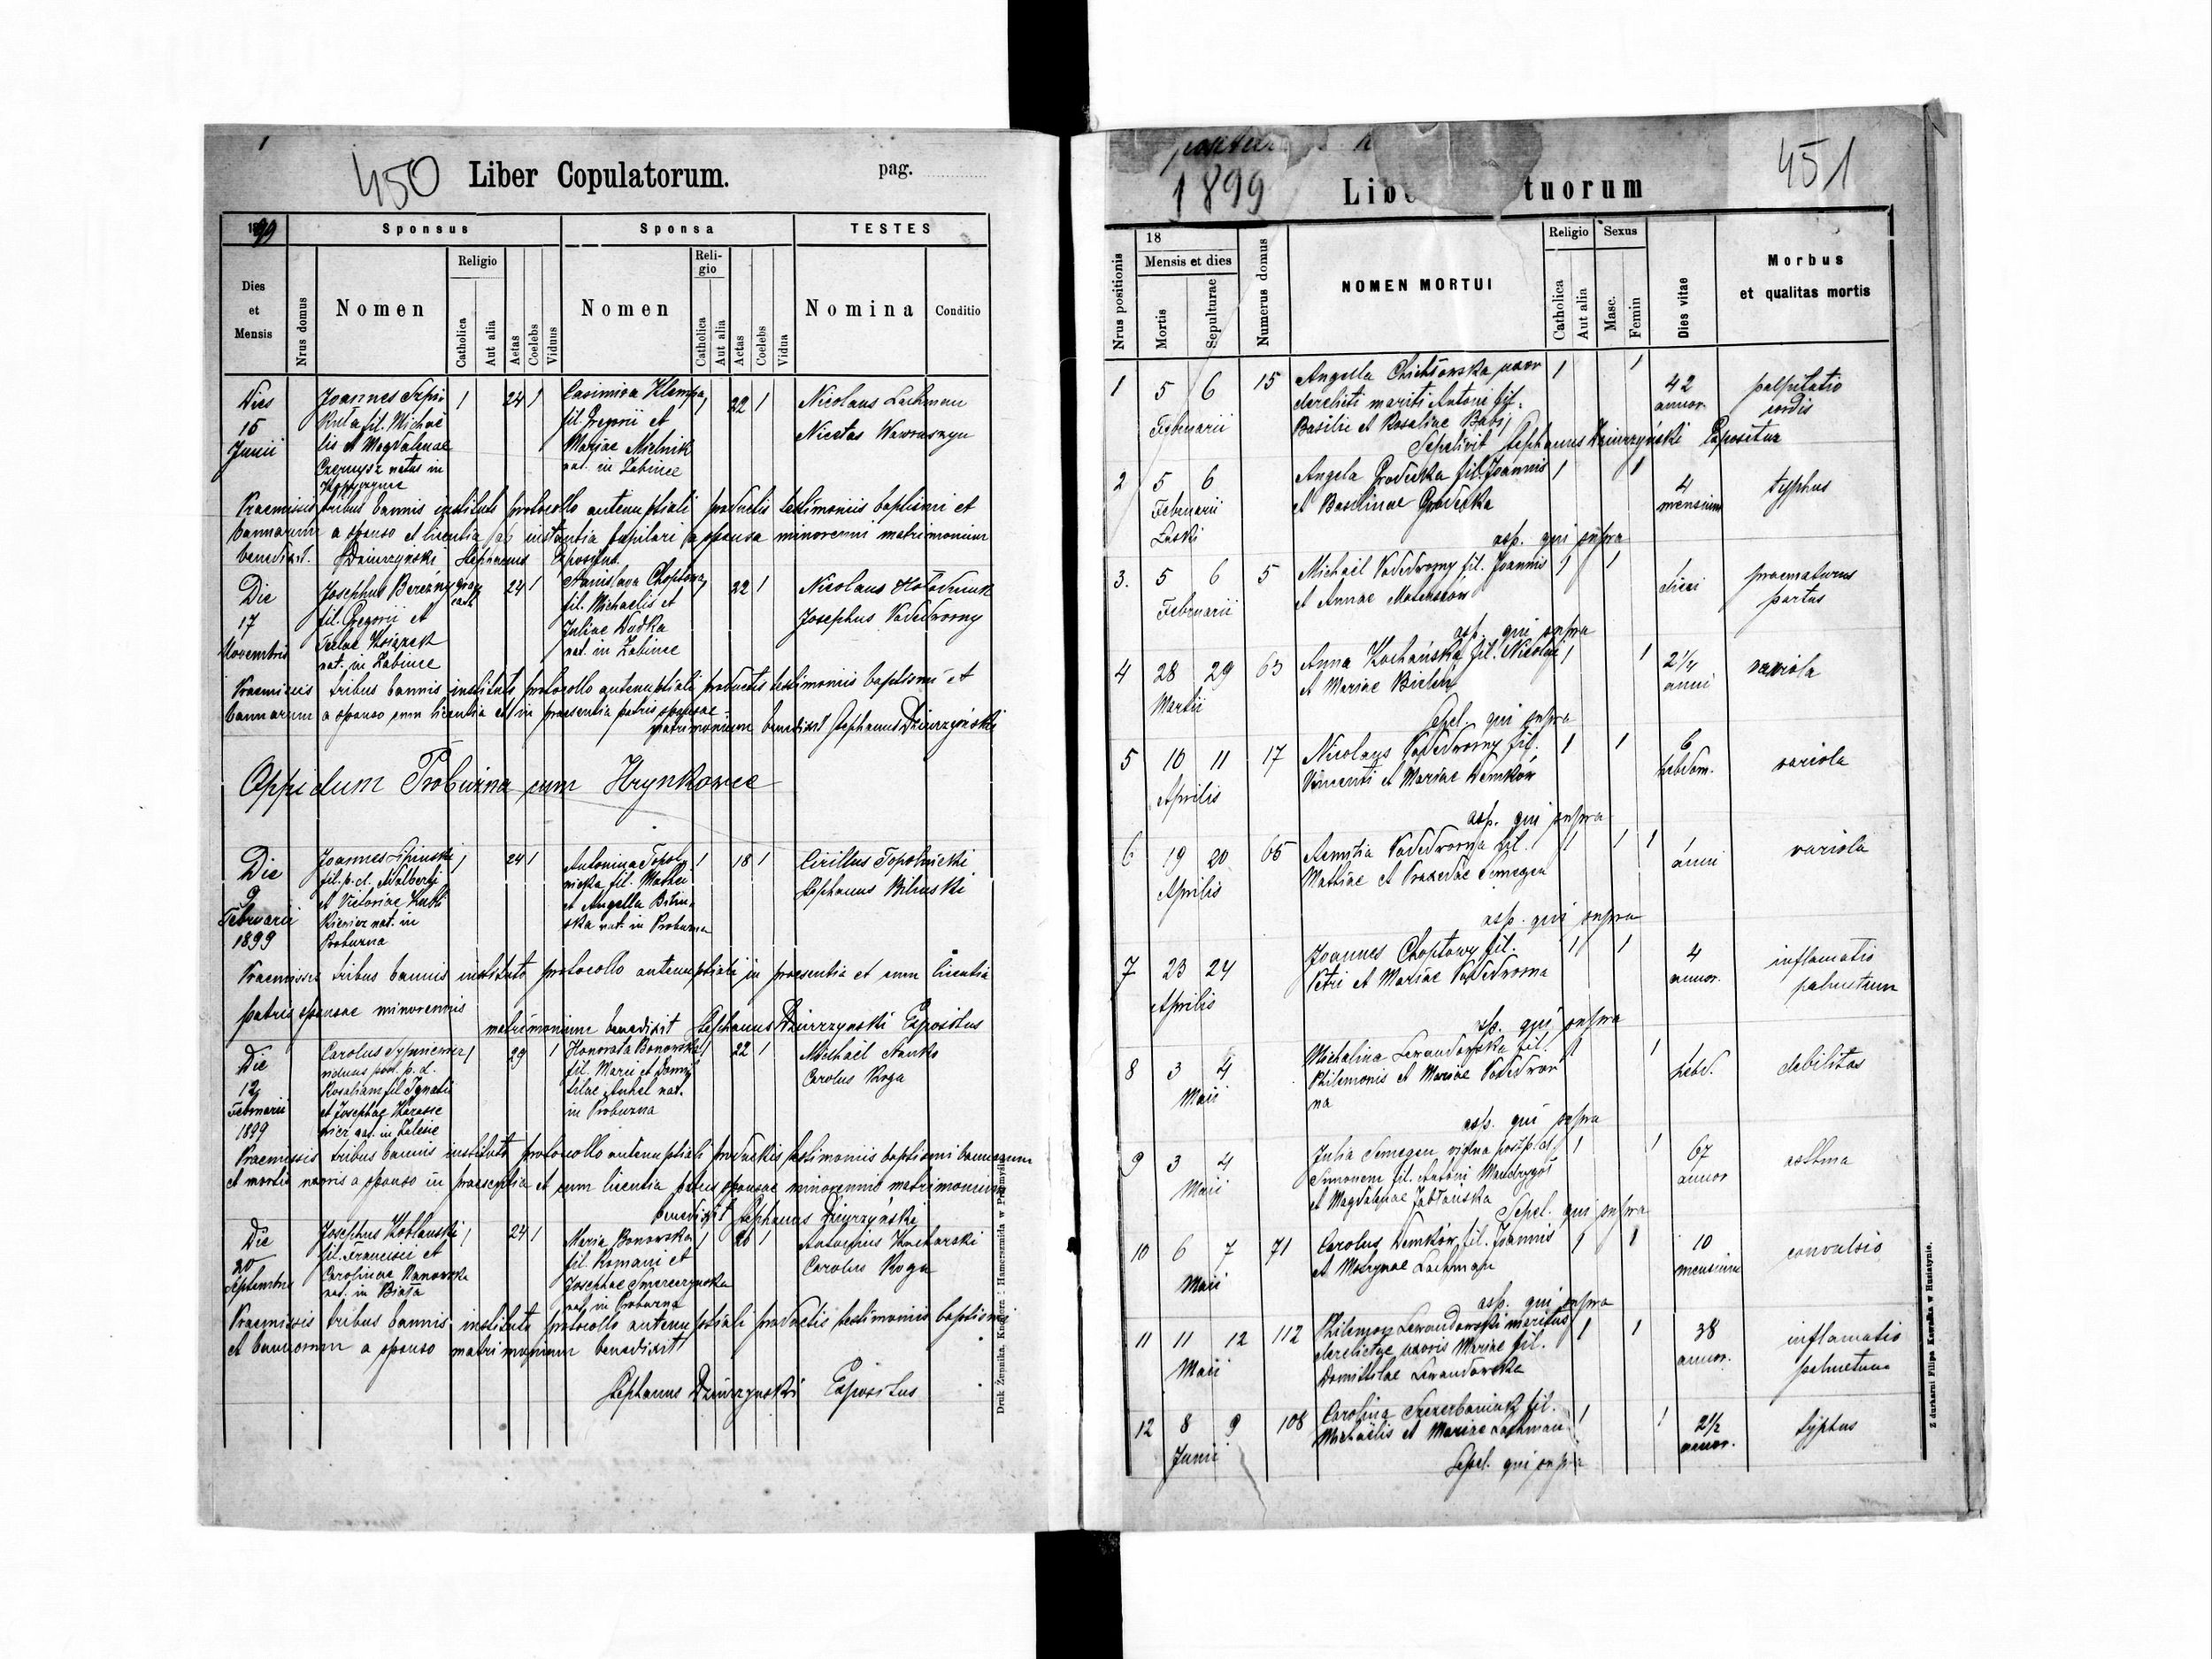 450 Liber Copulatorum. pag.
1899 Sponsus Sponsa TESTES
Dies et Mensis Nrus domus Nomen Religio Catholica Aut alia Aetas Coelebs Viduus Nomen Religio Catholica Aut alia Aetas Coelebs Vidua Nomina Conditio
Dies 15 Junii
Joannes
fil. Michaë
lis et Magdalenae
Czernysz natus in
1 24 1
Casimira Klempa
fil. Gregorii et
Mariae Mielnik
nat. in Zabince
1 22 1
Nicolaus Lachman
Nicetas Wawraszyn
Praemissis tribus bannis instituto protocollo antenuptiali productis testimoniis baptismi et
bannorum a sponso et licentia ab instantia pupilari a sponsa minorenni matrimonium
benedixit. Dziurzyński Stephanus Expositus.
Die 17 Novembris
Josephus Berezny
fil. Gregorii et
Teclae Książek
nat. in Zabince
24 1
Stanislava Choptowy
fil. Michaelis et
Juliae Dudka
nat. in Zabince
22 1
Nicolaus Hołodniuk
Josephus Nadedworny
Praemissis tribus bannis instituto protocollo antenuptiali productis testimoniis baptismi et
bannorum a sponso cum licentia et in praesentia patris sponsae
matrimonium benedixit Stephanus Dziurzyński
Oppidum Probużna cum Hrynkowce
Die 9 Februarii 1899
Joannes Lipinski
fil. p. d. Adalberti
et Victoriae
nat. in
Probuzna
1 24 1
Antonina Topol
nicka fil. Mathei
et Angella Bilin
ska nat. in Probuzna
1 18 1
Cirillus Topolnicki
Stephanus Bilinski
Praemissis tribus bannis instituto protocollo antenuptiali in praesentia et cum licentia
patris sponsae minorennis
matrimonium benedixit Stephanus Dziurzynski Expositus
Die 12 Februarii 1899
Carolus
viduus post p. d.
Rosaliam fil Ignatii
et Josephae
nat. in Zalesie
1 29 1
Honorata Bonowska
fil. Marci et Domi
tilae nat.
in Probuzna
1 22 1
Michaël Stanko
Carolus Roga
Praemissis tribus bannis instituto protocollo antenuptiali productis testimoniis baptismi bannorum
et mortis uxoris a sponso in praesentia et cum licentia patris sponsae minorennis matrimonium
benedixit Stephanus Dziurzyński
Die 20 Septembris
Josephus Kotlanski
fil. Francisci et
Carolinae
nat. in Biała
1 24 1
Maria Bonowska
fil. Romani et
Josephae
nat. in Probuzna
1 20 1
Antonius Kucharski
Carolus Roga
Praemissis tribus bannis instituto protocollo antenuptiali productis testimoniis baptismi
et bannorum a sponso matrimonium benedixit
Stephanus Dziurzynski Expositus
1899 451
Nrus positionis 18 Mensis et dies Mortis Sepulturae Numerus domus NOMEN MORTUI Religio Catholica Aut alia Sexus Masc. Femin Dies vitae Morbus et qualitas mortis
1 5 6 Februarii 15 Angella uxor
derelicti mariti Antoni fil.
Basilii et Rosaliae Babij
1 1 42 annor. palpitatio cordis
Sepelivit Stephanus Dziurzyński Expositus
2 5 6 Februarii Angela Grodecka fil. Joannis
et Basilinae Grodecka
1 1 4 mensium typhus
asp. qui supra
3. 5 6 Februarii 5 Michaël Nadedworny fil. Joannis
et Annae
1 1 1 diei praematurus partus
asp. qui supra
4 28 29 Martii 63 Anna Kochańska fil. Nicolai
et Mariae
1 1 2 1/4 anni variola
Sepel. qui supra
5 10 11 Aprilis 17 Nicolaus Nadedworny fil.
Vincenti et Mariae Demków
1 1 6 hebdom. variola
asp. qui supra
6 19 20 Aprilis 65 Nadedworna fil.
Mathiae et Praxedae Semegen
1 1 1 1 anni variola
asp. qui supra
7 23 24 Aprilis Joannes Choptowy fil.
Petri et Mariae Nadedworna
1 1 4 annor. inflamatio pulmonum
asp. qui supra
8 3 4 Maii Michalina Lewandowska fil.
Philemonis et Mariae Nadedwor
na
1 1 1 hebd. debilitas
asp. qui supra
9 3 4 Maii Julia Semegen vidua post p. d.
Simonem fil. Antoni
et Magdalenae Jabłońska
1 1 67 annor asthma
Sepel. qui supra
10 6 7 Maii 71 Carolus Demków fil. Joannis
et Lachman
1 1 10 mensium convulsio
asp. qui supra
11 11 12 Maii 112 Philemon Lewandowski maritus
derelictae uxoris Mariae fil.
Domitilae Lewandowska
1 1 38 annor. inflamatio
12 8 9 Junii 108 Carolina Szczerbaniuk fil.
Michaëlis et Mariae Lachman
1 1 2 1/2 annor. typhus
Sepel. qui supra
Z durkarni Filipa Kawałka w Husiatynie.